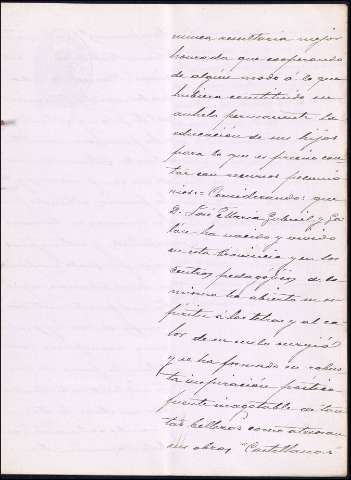 nunca resultaría mejor
honrada que cooperando
de algún modo á lo que
hubiera constituido su
anhelo permanente la
educación de sus hijos
para lo que es preciso con-
tar con recursos pecunia-
rios = Considerando: que
D. José María Gabriel y Ga-
lán ha nacido y vivido
en esta provincia y en los
centros pedagógicos de la
misma ha abierto su es-
píritu á las letras y al ca-
lor de su suelo surgió
y se ha formado su robus-
ta inspiración poética
fuente inagotable de tan-
tas bellezas como atesoran
sus obras "Castellanas"